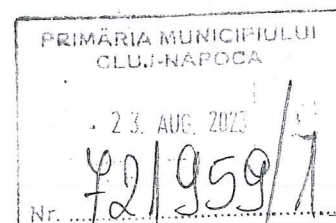 PRIMĂRIA MUNICIPIULUI
CLUJ-NAPOCA
23. AUG. 2023
Nr. 721959/1